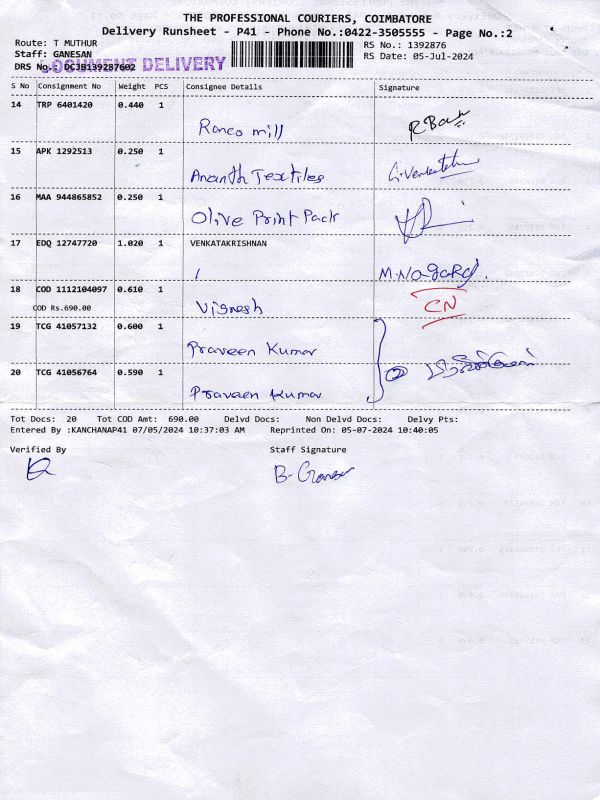 THE PROFESSIONAL COURIERS, COIMBATORE
Delivery Runsheet - P41 - Phone No.:0422-3505555 - Page No.:2
Route: T MUTHUR RS No.: 1392876
Staff: GANESAN RS Date: 05-Jul-2024
DOCUMENT DELIVERY
DRS No.: DCJB139287602
S No Consignment No Weight PCS Consignee Details Signature
14 TRP 6401420 0.440 1
Ranco mill
15 APK 1292513 0.250 1
Ananth Textiles G. Venkatesh
16 MAA 944865852 0.250 1
Olive Print Pack
17 EDQ 12747720 1.020 1 VENKATAKRISHNAN
18 COD 1112104097 0.610 1 CN
COD Rs.690.00 Vignesh
19 TCG 41057132 0.600 1
Praveen Kumar
20 TCG 41056764 0.590 1 2
Praveen Kumar
Tot Docs: 20 Tot COD Amt: 690.00 Delvd Docs: Non Delvd Docs: Delvy Pts:
Entered By :KANCHANAP41 07/05/2024 10:37:03 AM Reprinted On: 05-07-2024 10:40:05
Verified By Staff Signature